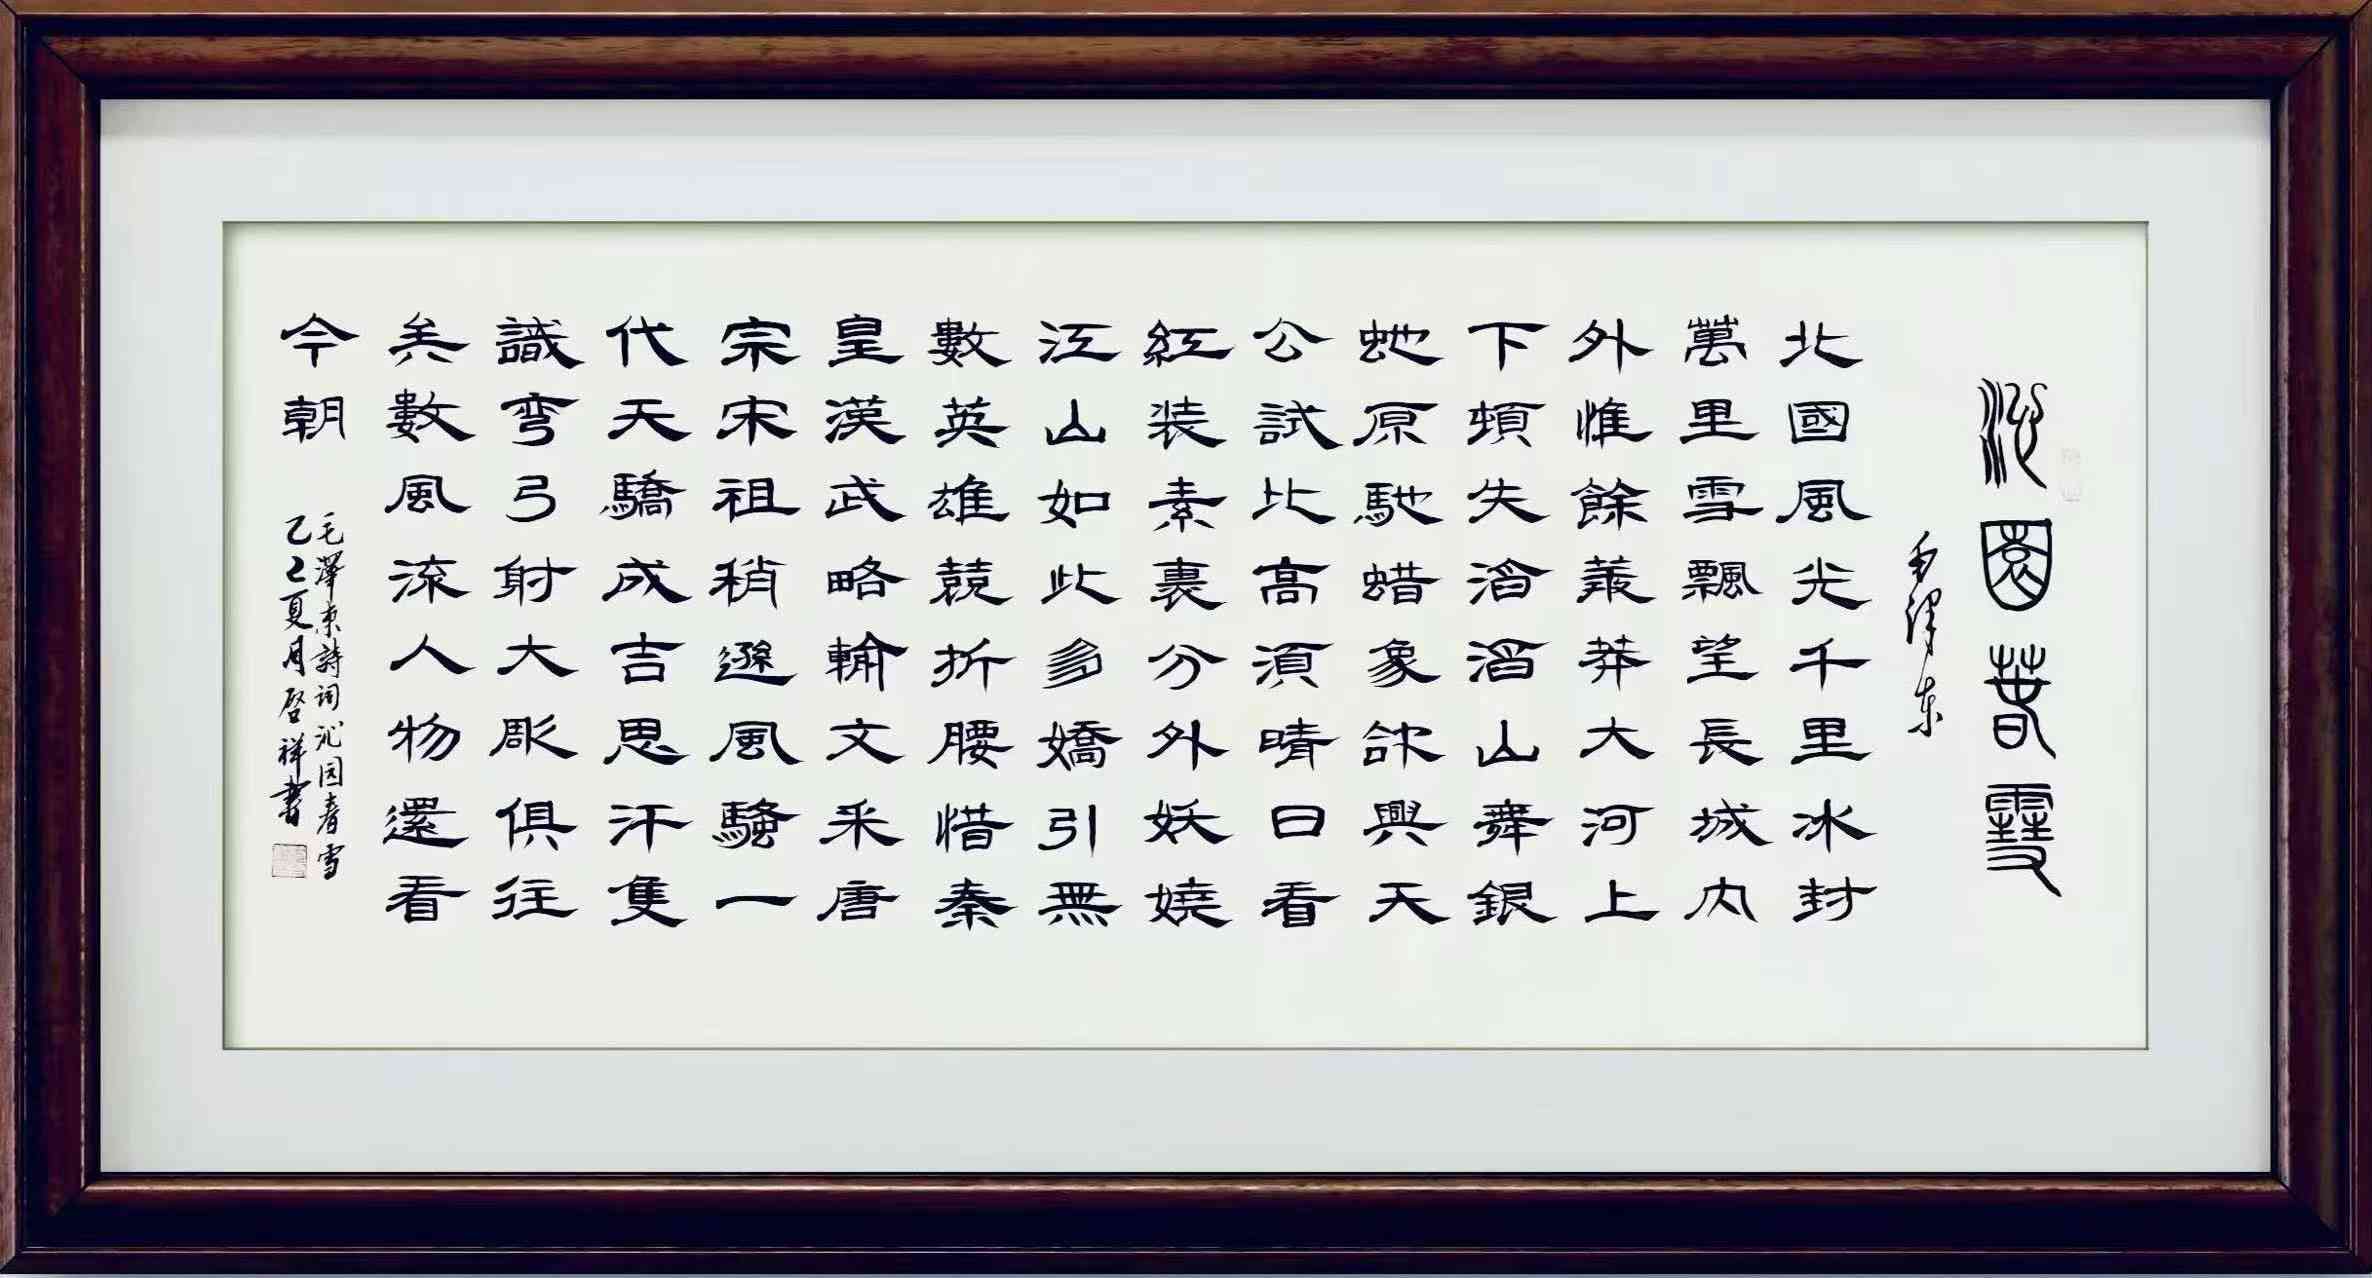 沁園春雪
毛泽东
北國風光千里冰封
萬里雪飄望長城内
外惟餘莽莽大河上
下頓失滔滔山舞銀
蛇原馳蜡象欲與天
公試比高須晴日看
紅装素裹分外妖嬈
江山如此多嬌引無
數英雄競折腰惜秦
皇漢武略輸文采唐
宗宋祖稍遜風騷一
代天驕成吉思汗隻
識彎弓射大彫俱往
矣數風流人物還看
今朝
毛澤東詩词沁园春雪
乙巳夏月啓祥書